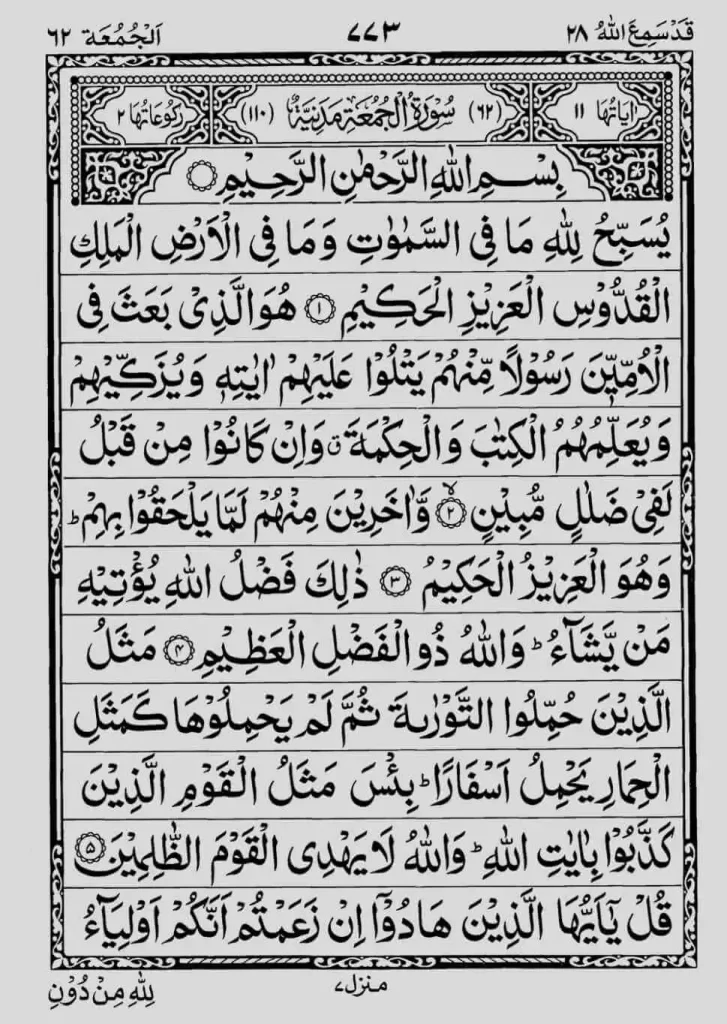 قَدْسَمِعَ اللّٰهُ ٢٨
٧٧٣
اَلْجُمُعَة ٦٢
اٰيَاتُهَا ١١
(٦٢) سُوْرَةُ الْجُمُعَةِ مَدَنِيَّةٌ (١١٠)
رُكُوْعَاتُهَا ٢
بِسْمِ اللّٰهِ الرَّحْمٰنِ الرَّحِيْمِ ۝
يُسَبِّحُ لِلّٰهِ مَا فِى السَّمٰوٰتِ وَمَا فِى الْاَرْضِ الْمَلِكِ
الْقُدُّوْسِ الْعَزِيْزِ الْحَكِيْمِ ۝١ هُوَ الَّذِىْ بَعَثَ فِى
الْاُمِّيّٖنَ رَسُوْلًا مِّنْهُمْ يَتْلُوْا عَلَيْهِمْ اٰيٰتِهٖ وَيُزَكِّيْهِمْ
وَيُعَلِّمُهُمُ الْكِتٰبَ وَالْحِكْمَةَ ۗ وَاِنْ كَانُوْا مِنْ قَبْلُ
لَفِىْ ضَلٰلٍ مُّبِيْنٍ ۝٢ۙ وَّاٰخَرِيْنَ مِنْهُمْ لَمَّا يَلْحَقُوْا بِهِمْ ؕ
وَهُوَ الْعَزِيْزُ الْحَكِيْمُ ۝٣ ذٰلِكَ فَضْلُ اللّٰهِ يُؤْتِيْهِ
مَنْ يَّشَآءُ ؕ وَاللّٰهُ ذُو الْفَضْلِ الْعَظِيْمِ ۝٤ مَثَلُ
الَّذِيْنَ حُمِّلُوا التَّوْرٰىةَ ثُمَّ لَمْ يَحْمِلُوْهَا كَمَثَلِ
الْحِمَارِ يَحْمِلُ اَسْفَارًا ؕ بِئْسَ مَثَلُ الْقَوْمِ الَّذِيْنَ
كَذَّبُوْا بِاٰيٰتِ اللّٰهِ ؕ وَاللّٰهُ لَا يَهْدِى الْقَوْمَ الظّٰلِمِيْنَ ۝٥
قُلْ يٰۤاَيُّهَا الَّذِيْنَ هَادُوْۤا اِنْ زَعَمْتُمْ اَنَّكُمْ اَوْلِيَآءُ
منزل ٧
لِلّٰهِ مِنْ دُوْنِ